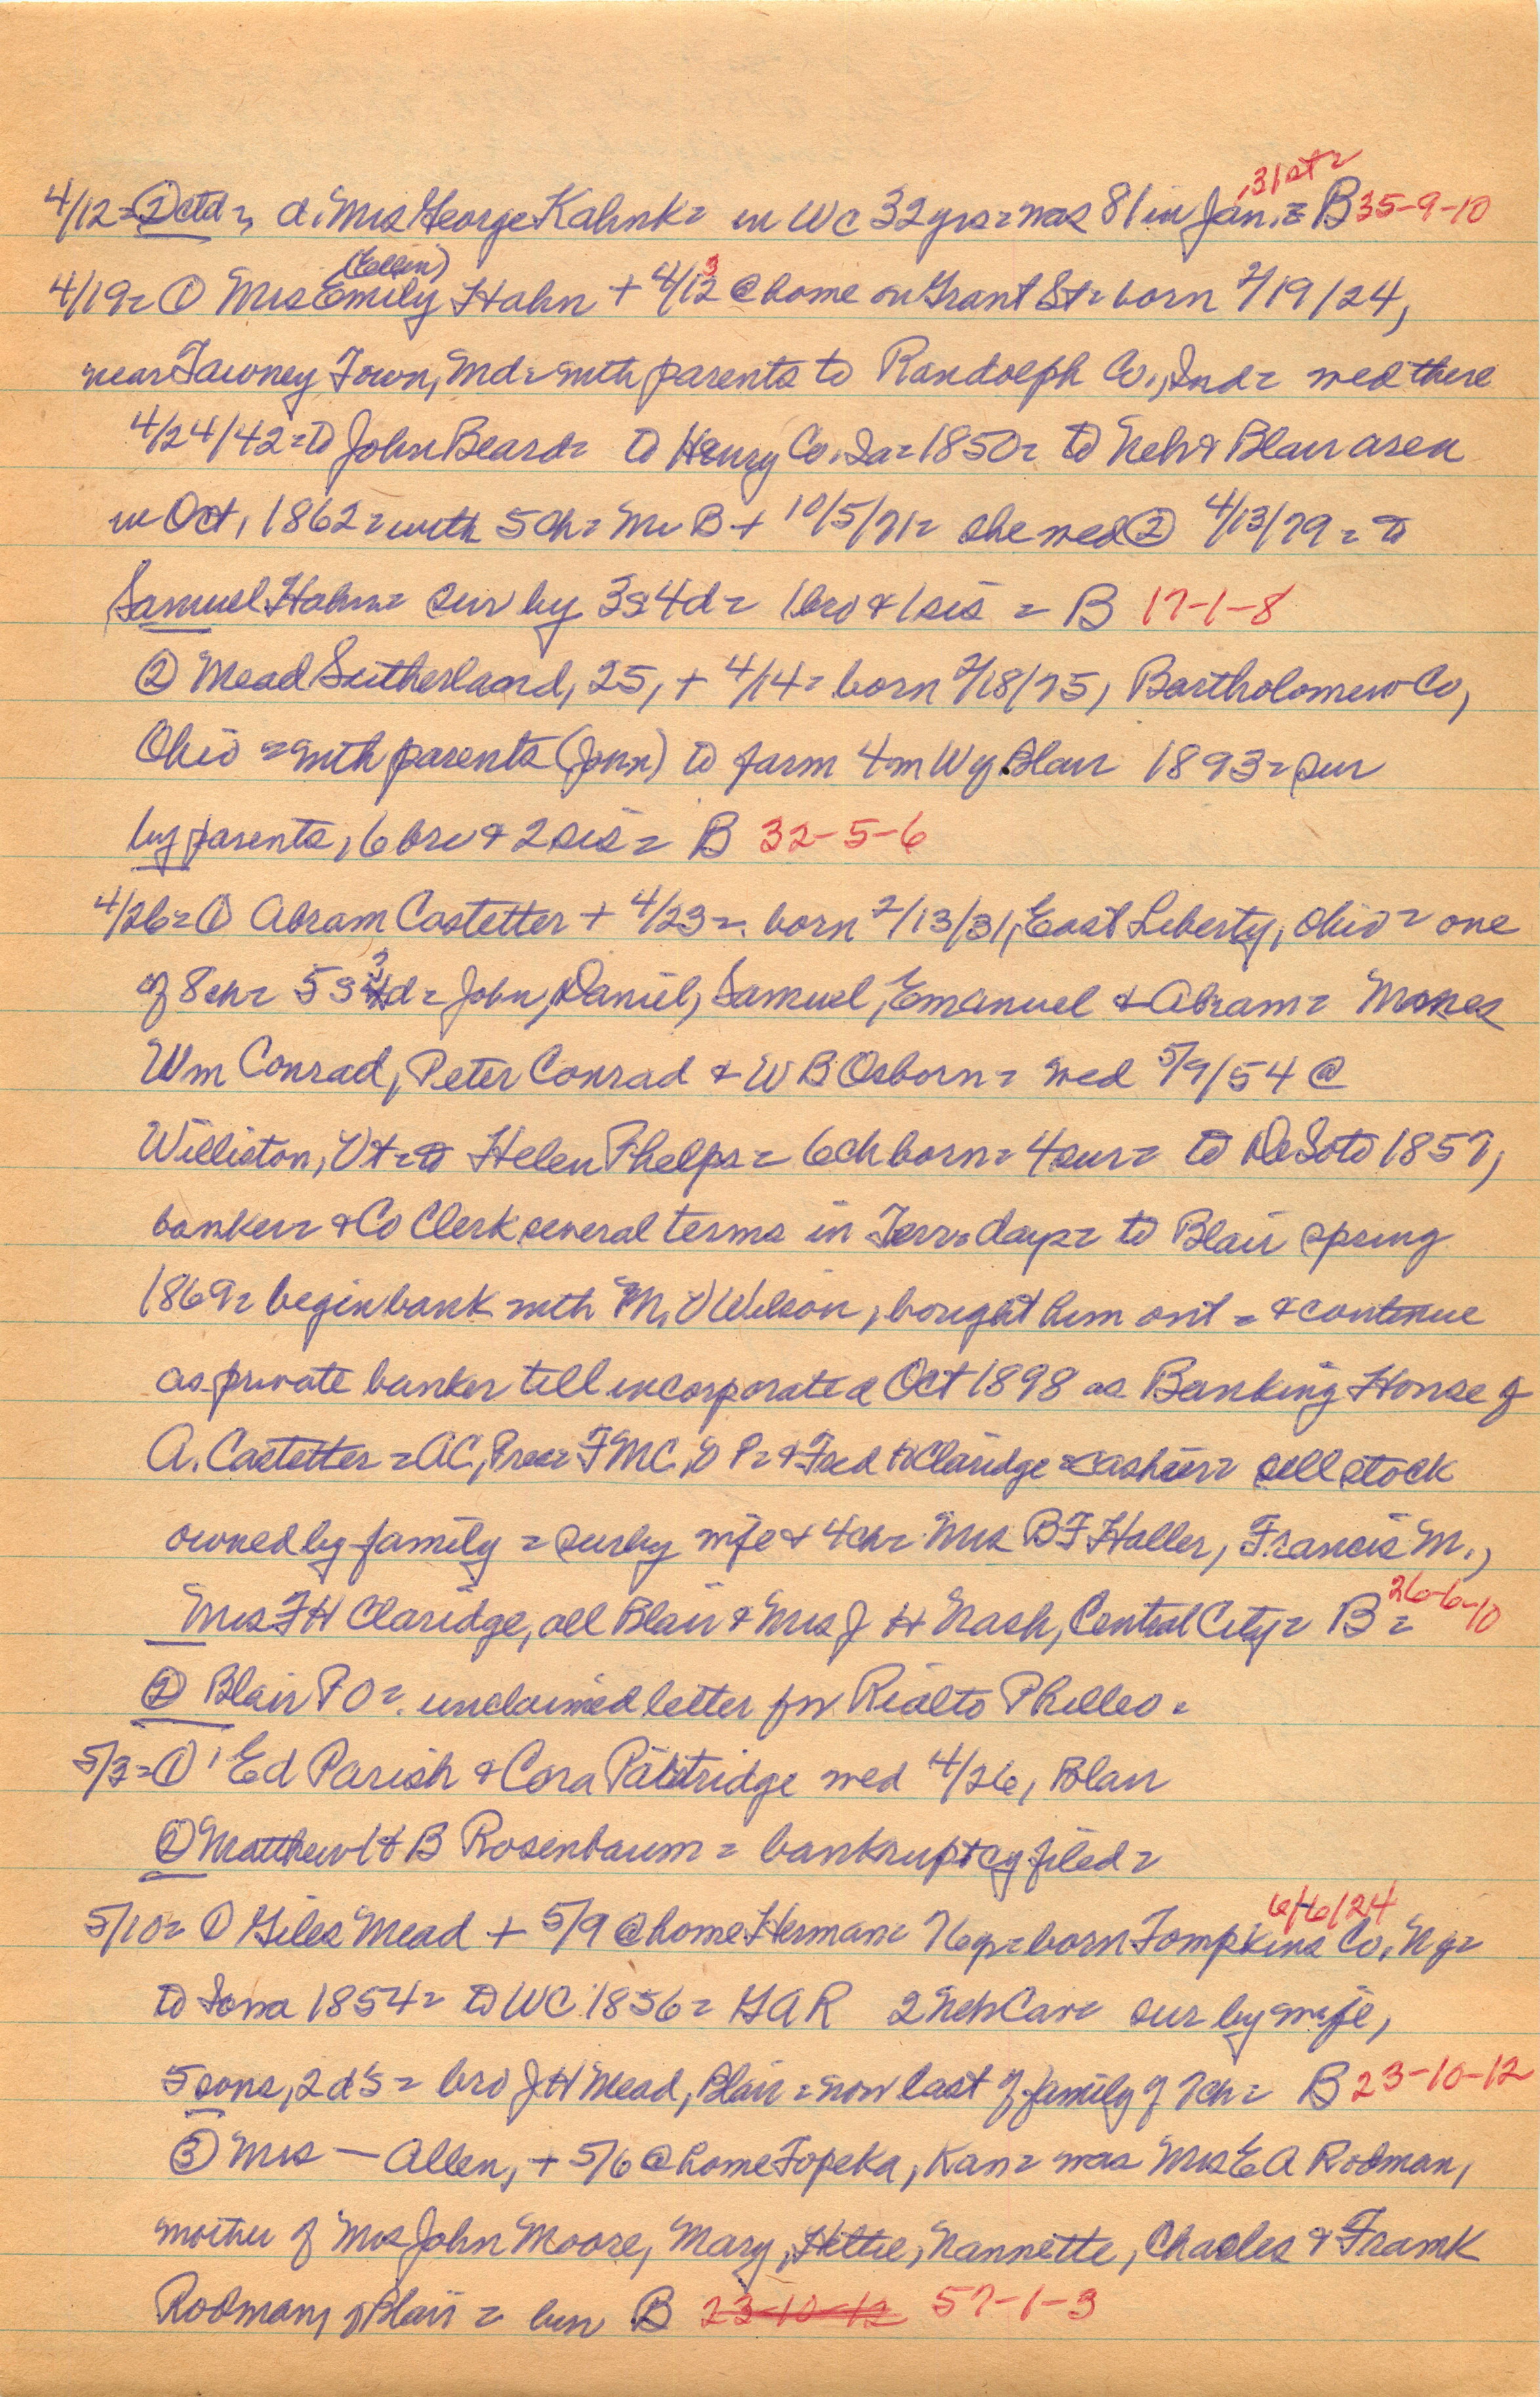 ,31st=
4/12=② ctd=, d. Mrs George Kahnk= in WC 32 yrs= was 81 in Jan.= B 35-9-10
(Ellen)
4/19= ① Mrs Emily Hahn + 4/13 @ home on Grant St= born 2/19/24,
near Tawney Town, Md= with parents to Randolph Co., Ind= wed there
4/24/42= to John Beard= to Henry Co. Ia= 1850= to Neb & Blair area
in Oct, 1862= with 5 ch= Mr B + 10/5/71= she wed ② 4/13/79= to
Samuel Hahn= sur by 3s 4d= 1 bro & 1 sis = B 17-1-8
② Mead Sutherland, 25, + 4/14= born 2/18/75, Bartholomew Co,
Ohio = with parents (John) to farm 4m W of Blair 1893= sur
by parents, 6 bro & 2 sis= B 32-5-6
4/26= ① Abram Castetter + 4/23=. born 2/13/31, East Liberty, Ohio= one
of 8 ch= 5s 3d= John, Daniel, Samuel, Emanuel & Abram= Mmes
Wm Conrad, Peter Conrad & W B Osborn= wed 5/9/54 @
Williston, Vt= to Helen Phelps= 6 ch born= 4 sur= to DeSoto 1857,
banker= & Co Clerk several terms in Terr= days= to Blair spring
1869= begin bank with M. V Wilson, bought him out = & continue
as private banker till incorporated Oct 1898 as Banking House of
A. Castetter = AC, Pres= FMC, V P= & Fred H Claridge = cashier= all stock
owned by family = sur by wife & 4 ch= Mrs B F Haller, Francis M.,
Mrs F H Claridge, all Blair & Mrs J H Nash, Central City= B = 26-6-10
② Blair P O= unclaimed letter for Rialto Philleo =
5/3= ① Ed Parish & Cora Partridge wed 4/26, Blair
② Matthew H & B Rosenbaum = bankruptcy filed=
6/6/24
5/10= ① Giles Mead + 5/9 @ home Herman= 76 y= born Tompkins Co, NY=
to Iowa 1854= to WC 1856= GAR 2 Neb Cav= sur by wife,
5 sons, 2 d's = bro J H Mead, Blair = now last of family of 7 ch= B 23-10-12
③ Mrs — Allen, + 5/6 @ home Topeka, Kan= was Mrs E A Rodman,
mother of Mrs John Moore, Mary, Hettie, Nannette, Charles & Frank
Rodman, of Blair = bur B 23-10-12 57-1-3